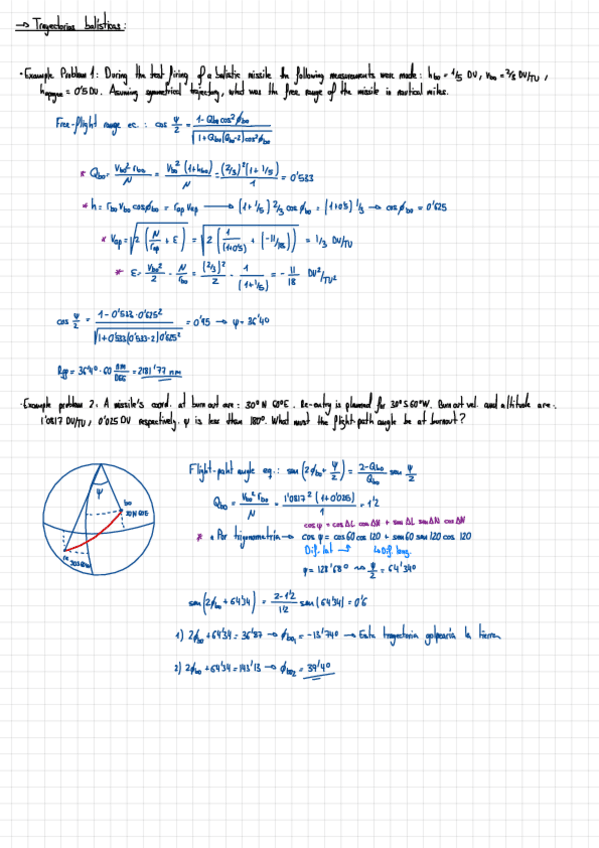 → Trayectorias balísticas:
· Example Problem 1: During the test firing of a balistic missile the following measurements were made: hbo = 1/5 DU, Vbo = 2/3 DU/TU,
hapogee = 0'5 DU. Assuming symmetrical trajectory, what was the free range of the missile in nautical miles.
Free-flight range ec.: cos Ψ/2 = (1 - Qbo cos²ϕbo) / √(1 + Qbo(Qbo - 2) cos²ϕbo)
* Qbo = Vbo² rbo / μ = Vbo² (1 + hbo) / μ = (2/3)² (1 + 1/5) / 1 = 0'533
* h = rbo Vbo cosϕbo = rap Vap → (1 + 1/5) 2/3 cos ϕbo = (1+0'5) 1/3 → cos ϕbo = 0'625
* Vap = √(2 (μ/rap + E)) = √(2 (1/(1+0'5) + (-11/18))) = 1/3 DU/TU
* E = Vbo²/2 - μ/rbo = (2/3)²/2 - 1/(1+1/5) = - 11/18 DU²/TU²
cos Ψ/2 = (1 - 0'533 · 0'625²) / √(1 + 0'533(0'533 - 2) 0'625²) = 0'95 → Ψ = 36'40
Rff = 36'4° · 60 nm/DEG = 2181'77 nm
· Example problem 2. A missile's coord. at burnout are: 30° N 60°E. Re-entry is planned for 30° S 60°W. Burnout vel. and altitude are:
1'0817 DU/TU, 0'025 DU respectively. Ψ is less than 180°. What must the flight-path angle be at burnout?
Flight-path angle eq.: sen (2ϕbo + Ψ/2) = (2 - Qbo)/Qbo sen Ψ/2
Ψ
bo
30N 60E
Qbo = Vbo² rbo / μ = 1'0817² (1+0'025) / 1 = 1'2
cos φ = cos ΔL cos ΔN + sen ΔL sen ΔN cos ΔN
* · Por trigonometría → cos φ = cos 60 cos 120 + sen 60 sen 120 cos 120
Dif. lat
Dif. long.
re
30S 60W
φ = 128'68° → Ψ/2 = 64'34°
sen (2ϕbo + 64'34) = (2 - 1'2)/1'2 sen (64'34) = 0'6
1) 2ϕbo + 64'34 = 36'87 → ϕbo1 = -13'74° → Esta trayectoria golpearía la tierra
2) 2ϕbo + 64'34 = 143'13 → ϕbo2 = 39'40